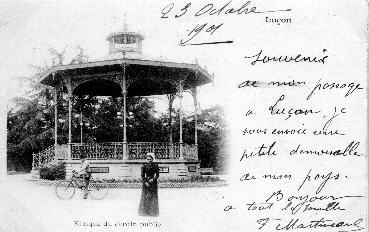 23 Octobre
1901
Luçon
Souvenir
de mon passage
a Luçon, je
vous envoie une
petite demoiselle
de mon pays.
Bonjour
a tout la famille
F Martineau
Kiosque du jardin public